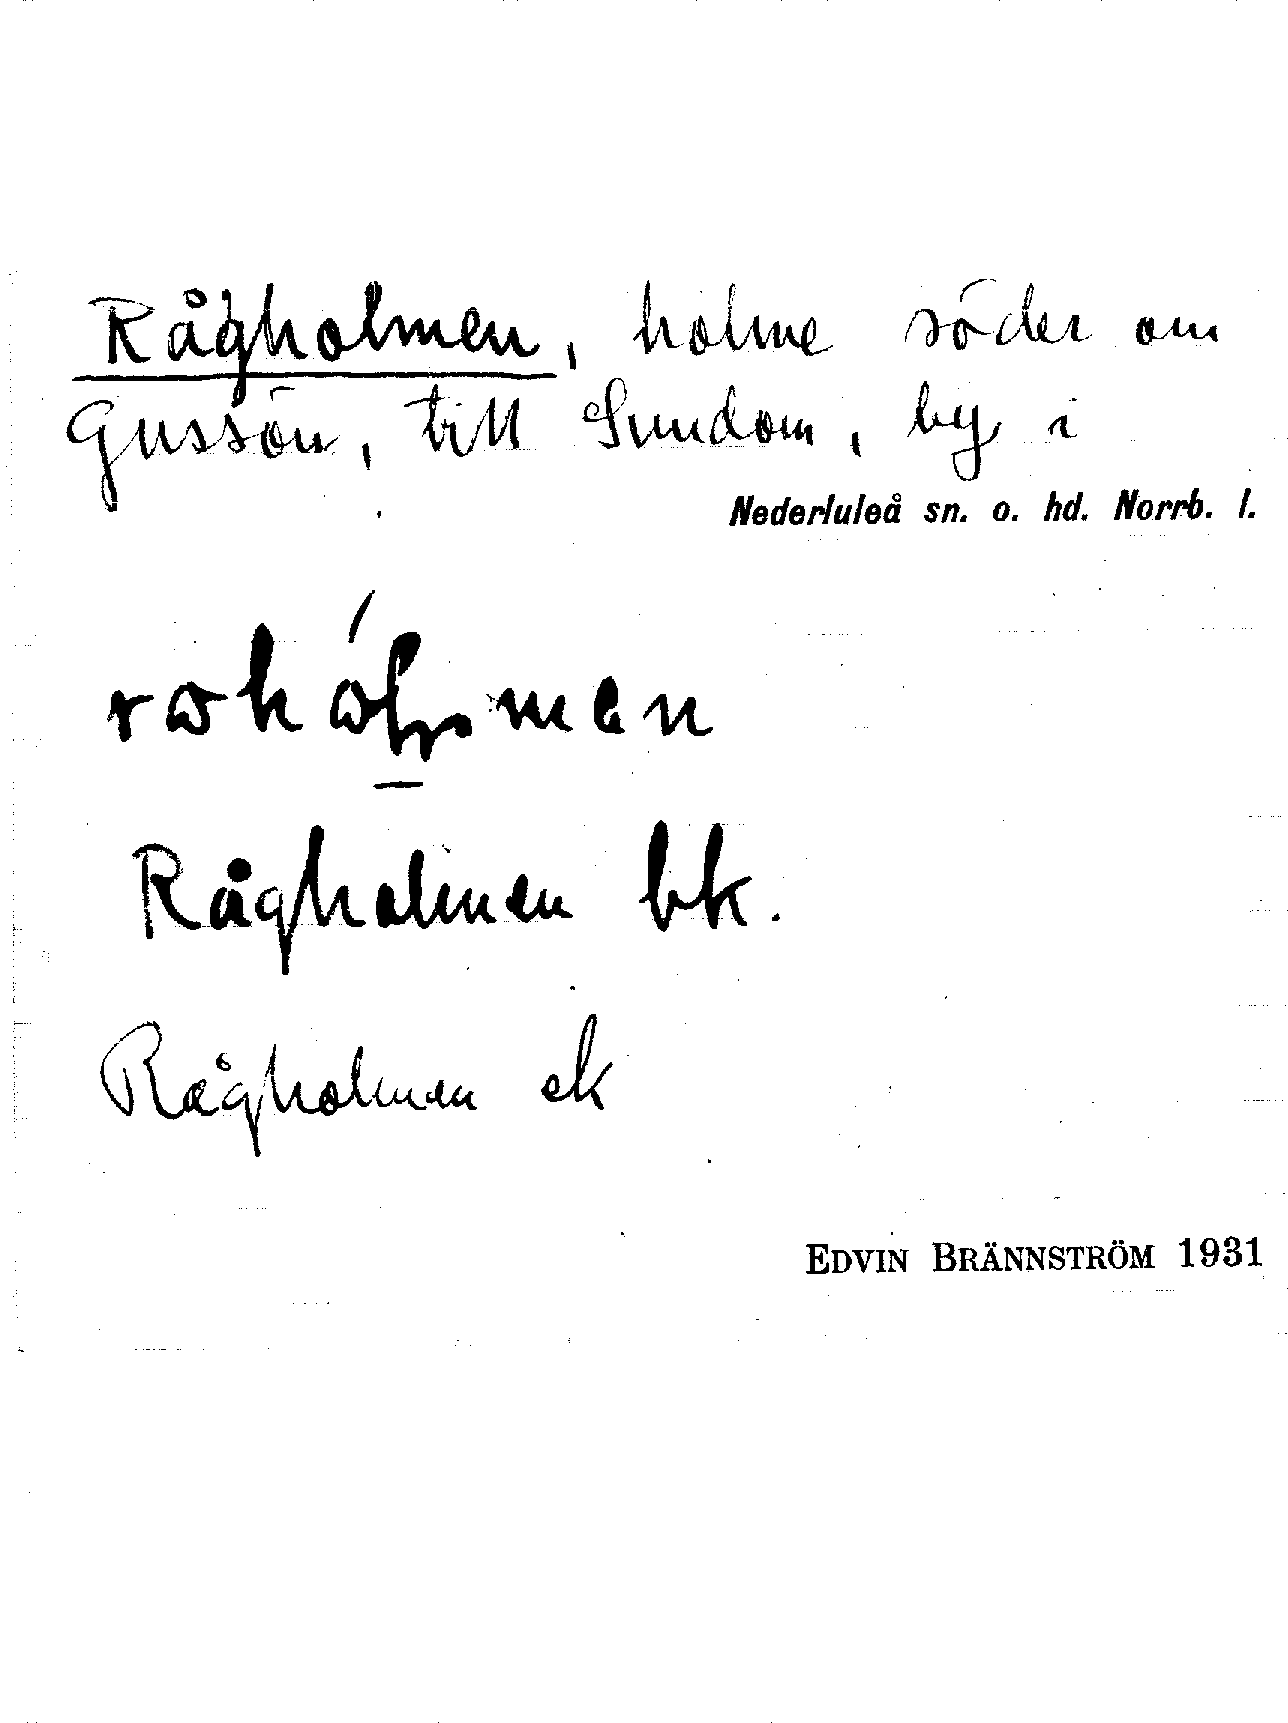 Rågholmen, holme söder om
Gussön, till Sundom, by i
Nederluleå sn. o. hd. Norrb. l.
Rågholmen bk.
Rågholmen ek
EDVIN BRÄNNSTRÖM 1931